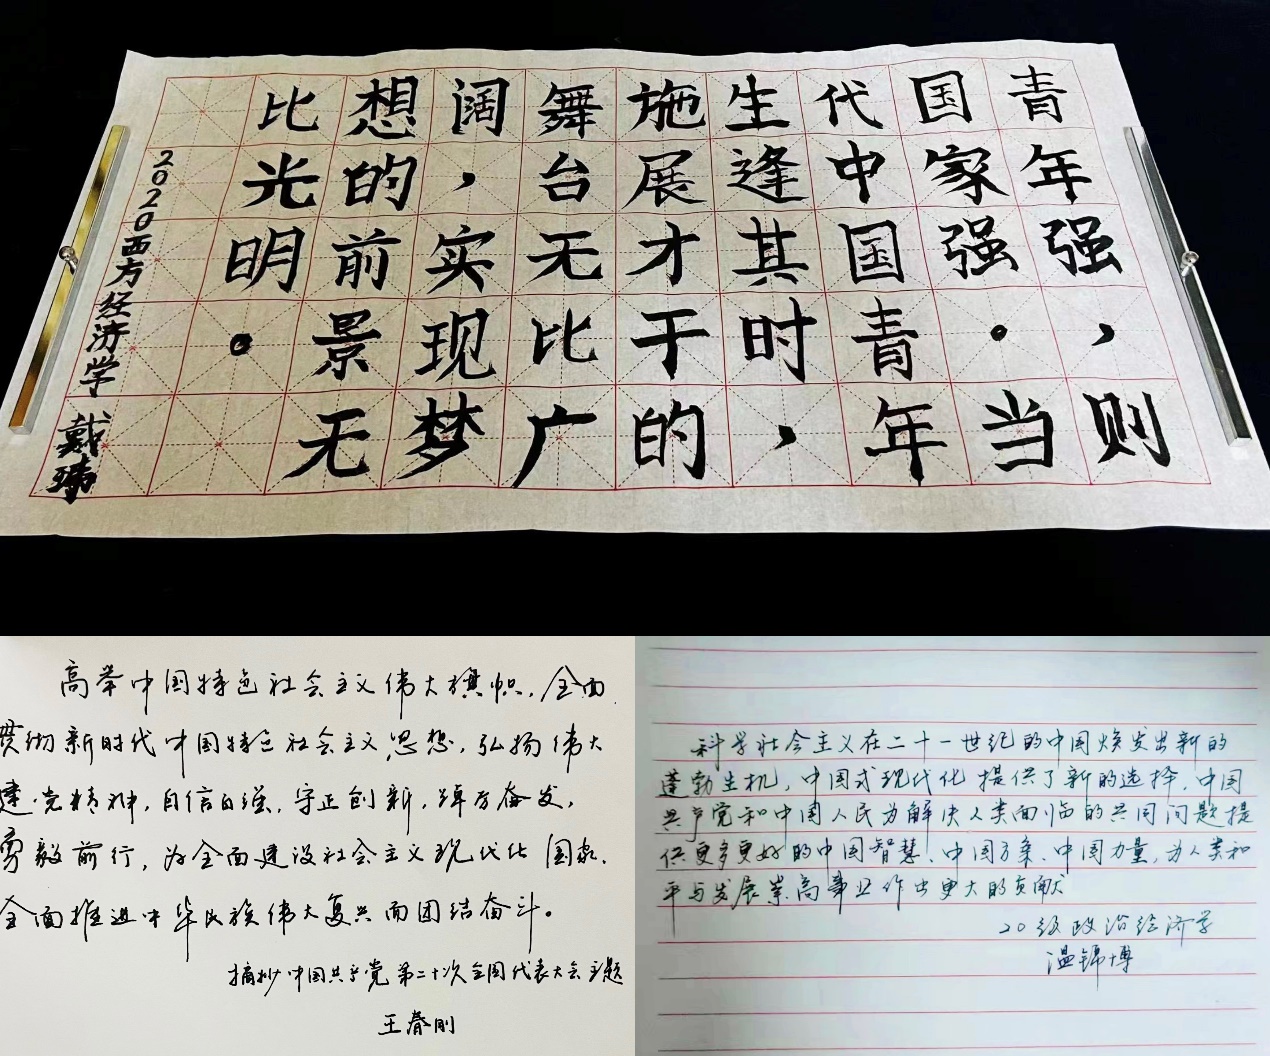 青年强，则
国家强。当
代中国青年
生逢其时，
施展才干的
舞台无比广
阔，实现梦
想的前景无
比光明。
2020西方经济学 戴玮
高举中国特色社会主义伟大旗帜，全面
贯彻新时代中国特色社会主义思想，弘扬伟大
建党精神，自信自强、守正创新，踔厉奋发、
勇毅前行，为全面建设社会主义现代化国家、
全面推进中华民族伟大复兴而团结奋斗。
摘抄中国共产党第二十次全国代表大会主题
王春刚
科学社会主义在二十一世纪的中国焕发出新的
蓬勃生机，中国式现代化提供了新的选择，中国
共产党和中国人民为解决人类面临的共同问题提
供更多更好的中国智慧、中国方案、中国力量，为人类和
平与发展崇高事业作出更大的贡献
20级政治经济学
温锦博